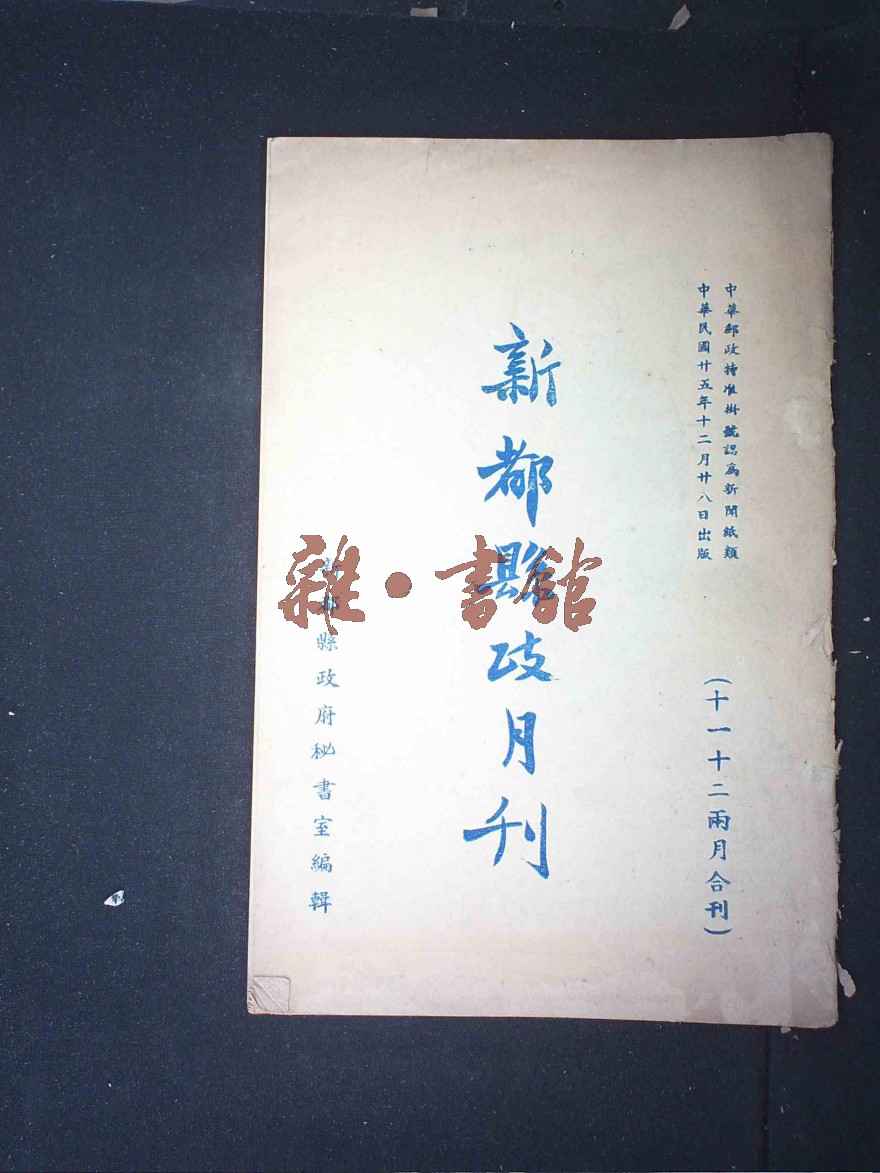 中華郵政特准掛號認爲新聞紙類
中華民國廿五年十二月廿八日出版
(十一十二兩月合刊)
新都縣政月刊
新都縣政府秘書室編輯
雜·書館